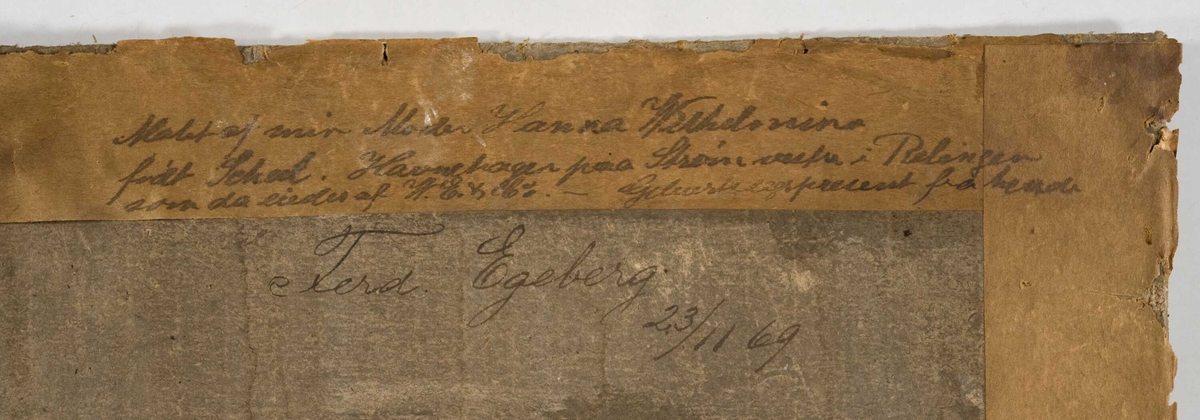 Malet af min Moder Hanna Wilhelmine
født Scheel. Havnehagen paa Strøm i Relingen
som da eiedes af W. E. & Co. — Geburtsdagspresent fra hende
Ferd. Egeberg
23/11 69